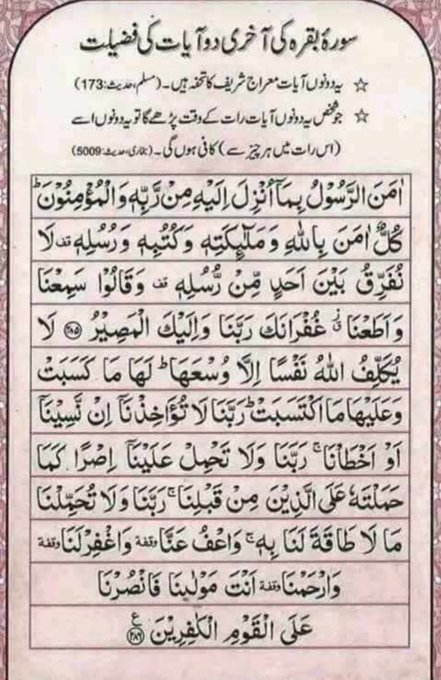 سورۂ بقرہ کی آخری دو آیات کی فضیلت
☆ یہ دونوں آیات معراج شریف کا تحفہ ہیں۔ (مسلم، حدیث:173)
☆ جو شخص یہ دونوں آیات رات کے وقت پڑھے گا تو یہ دونوں اسے
(اس رات میں ہر چیز سے) کافی ہوں گی۔ (بخاری، حدیث:5009)
اٰمَنَ الرَّسُوْلُ بِمَاۤ اُنْزِلَ اِلَیْهِ مِنْ رَّبِّهٖ وَالْمُؤْمِنُوْنَ ؕ
كُلٌّ اٰمَنَ بِاللّٰهِ وَمَلٰٓىِٕكَتِهٖ وَكُتُبِهٖ وَرُسُلِهٖ قف لَا
نُفَرِّقُ بَیْنَ اَحَدٍ مِّنْ رُّسُلِهٖ قف وَقَالُوْا سَمِعْنَا
وَاَطَعْنَا ق غُفْرَانَكَ رَبَّنَا وَاِلَیْكَ الْمَصِیْرُ ﴿۲۸۵﴾ لَا
یُكَلِّفُ اللّٰهُ نَفْسًا اِلَّا وُسْعَهَا ؕ لَهَا مَا كَسَبَتْ
وَعَلَیْهَا مَا اكْتَسَبَتْ ؕ رَبَّنَا لَا تُؤَاخِذْنَاۤ اِنْ نَّسِیْنَاۤ
اَوْ اَخْطَاْنَا ۚ رَبَّنَا وَلَا تَحْمِلْ عَلَیْنَاۤ اِصْرًا كَمَا
حَمَلْتَهٗ عَلَى الَّذِیْنَ مِنْ قَبْلِنَا ۚ رَبَّنَا وَلَا تُحَمِّلْنَا
مَا لَا طَاقَةَ لَنَا بِهٖ ۚ وَاعْفُ عَنَّا وقفة وَاغْفِرْ لَنَا وقفة
وَارْحَمْنَا وقفة اَنْتَ مَوْلٰىنَا فَانْصُرْنَا
عَلَى الْقَوْمِ الْكٰفِرِیْنَ ﴿۲۸۶﴾ ع